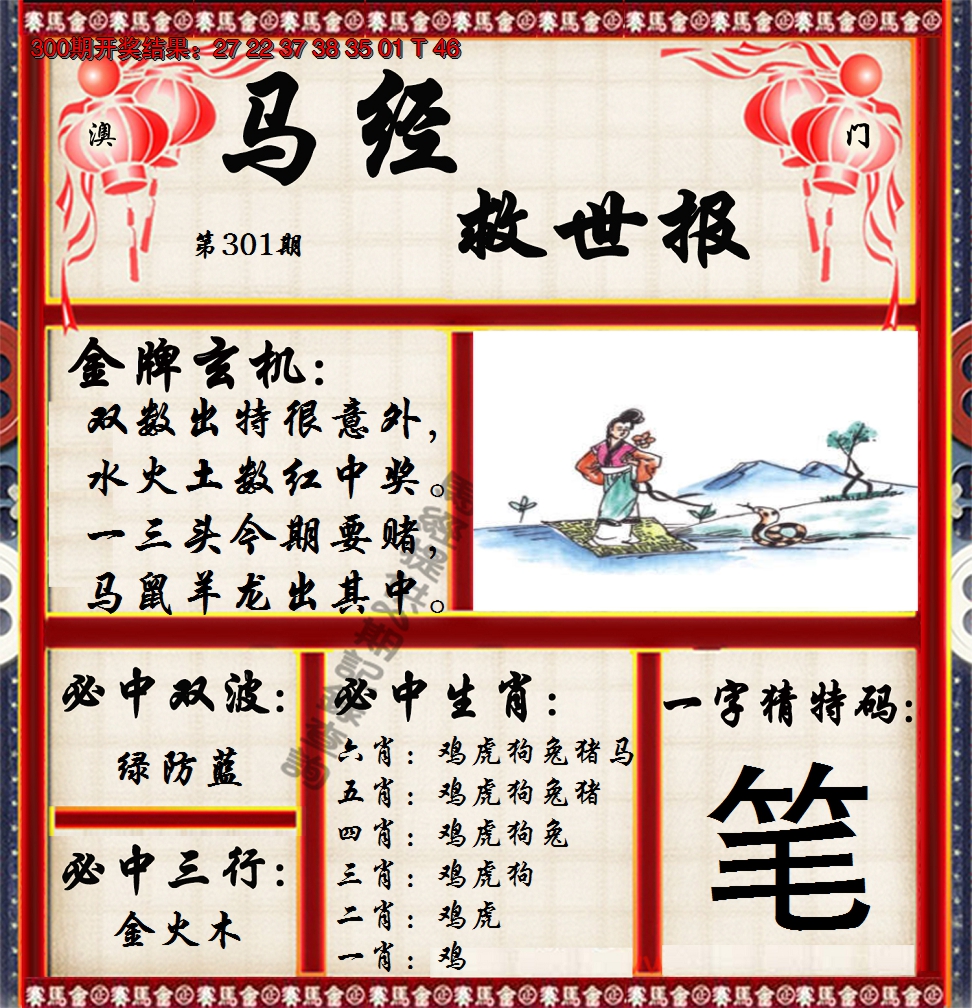 300期开奖结果：27 22 37 38 35 01 T 46
澳
门
马经
救世报
第301期
金牌玄机：
双数出特很意外，
水火土数红中奖。
一三头今期要赌，
马鼠羊龙出其中。
必中双波：
绿防蓝
必中三行：
金火木
必中生肖：
六肖：鸡虎狗兔猪马
五肖：鸡虎狗兔猪
四肖：鸡虎狗兔
三肖：鸡虎狗
二肖：鸡虎
一肖：鸡
一字猜特码：
笔